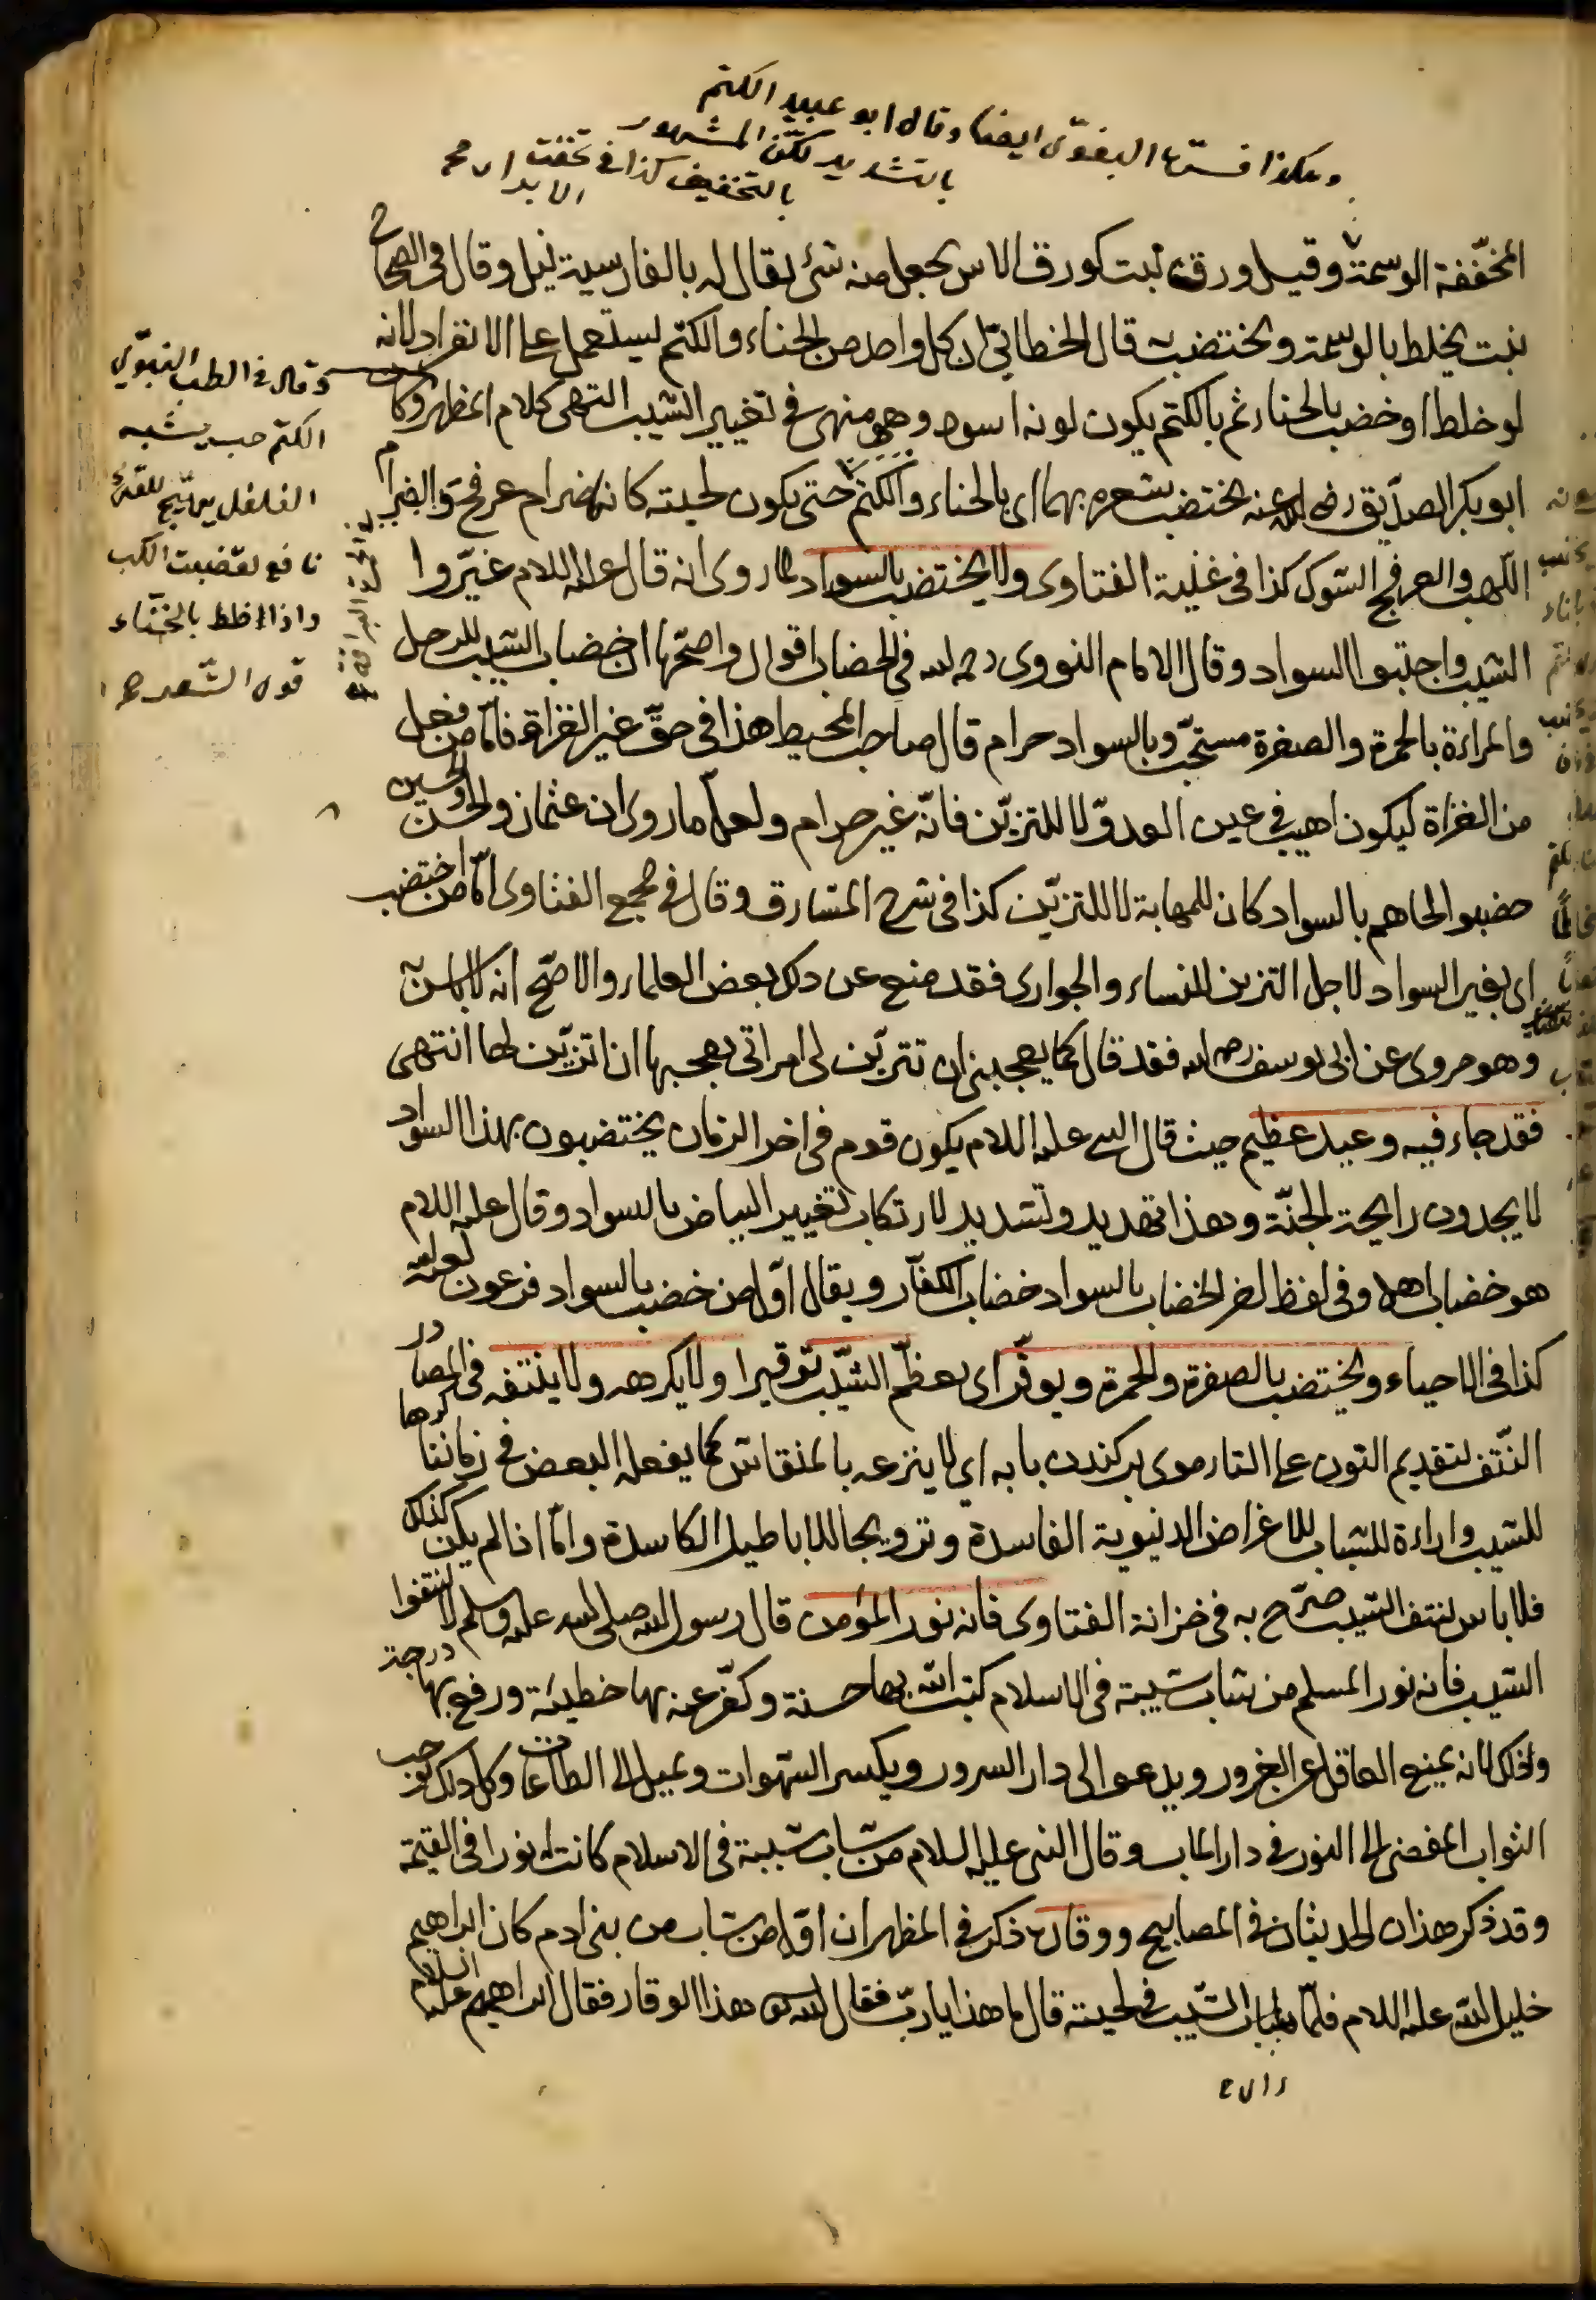 وهكذا فسرها البغوى ايضا وقال ابو عبيد الكتم
بالتشديد لكن المشهور
بالتخفيف كذا فى تحفة الابرار
المخففة الوسمة وقيل ورق نبت كورق الاس يجعل منه شئ يقال له بالفارسية نيل وقال فى الصحاح
نبت يخلط بالوسمة ويختضب قال الخطابى ان كل واحد من الحناء والكتم يستعمل على الانفراد لانه
لو خلط او خضب بالحناء ثم بالكتم يكون لونه اسود وهو منهى فى تغيير الشيب انتهى كلام المظهر وكان
ابو بكر الصديق رضى الله عنه يختضب شعره بهما اى بالحناء والكتم حتى يكون لحيته كانها ضرام عرفج والضرام
اللهب والعرفج الشوك كذا فى غنية الفتاوى ولا يختضب بالسواد لما روى انه قال عليه السلام غيّروا
الشيب واجتنبوا السواد وقال الامام النووى رحمه الله فى الخضاب اقوال واصحها ان خضاب الشيب للرجل
والمراءة بالحمرة والصفرة مستحبّ وبالسواد حرام قال صاحب المحيط هذا فى حقّ غير الغزاة فامّا من فعل
من الغزاة ليكون اهيب فى عين العدوّ لا للتزيّن فانّه غير حرام ولعلّ ما روى ان عثمان والحسن والحسين
خضبوا لحاهم بالسواد كان للمهابة لا للتزيّن كذا فى شرح المشارق وقال فى مجمع الفتاوى امّا من اختضب
اى بغير السواد لاجل التزين للنساء والجوارى فقد منع عن ذلك بعض العلماء والاصحّ انه لا باس به
وهو مروى عن ابى يوسف رحمه الله فقد قال كما يعجبنى ان تتزيّن لى امراتى يعجبها ان اتزيّن لها انتهى
فقد جاء فيه وعيد عظيم حيث قال النبى عليه السلام يكون قوم فى اخر الزمان يختضبون بهذا السواد
لا يجدون رايحة الجنّة وهذا تهديد وتشديد لارتكاب تغيير البياض بالسواد وقال عليه السلام
هو خضاب اهل وفى لفظ اخر الخضاب بالسواد خضاب الكفّار ويقال اوّل من خضب بالسواد فرعون لعنه الله
كذا فى الاحياء ويختضب بالصفرة والحمرة ويوقّر اى يعظّم الشيّب توقيرا ولا يكرهه ولا ينتفه فى المصادر
النّتف بتقديم النون على التاء موى بركندن بابه اى لا ينزعه بالمنقاش كما يفعله البعض فى زماننا كرها
للشيب واراءة للشباب للاغراض الدنيوية الفاسدة وترويجا للاباطيل الكاسدة وامّا اذا لم يكن كذلك
فلا باس بنتف الشيب صرّح به فى خزانة الفتاوى فانه نور المؤمن قال رسول الله صلى الله عليه وسلم لا تنتفوا
الشيب فانه نور المسلم من شاب شيبة فى الاسلام كتب الله بها حسنة وكفّر عنه بها خطيئة ورفع بها درجة
وذلك لانه يمنع العاقل عن الغرور ويدعو الى دار السرور ويكسر الشهوات ويميل الى الطاعات وكل ذلك يوجب
الثواب المفضى الى النور فى دار الماب وقال النبى عليه السلام من شاب شيبة فى الاسلام كانت له نورا فى القيمة
وقد ذكر هذان الحديثان فى المصابيح ووقاره ذكر فى المظهر ان اوّل من شاب من بنى ادم كان ابراهيم
خليل الله عليه السلام فلمّا بان الشّيب فى لحيته قال ما هذا يا ربّ فقال الله تعالى هذا الوقار فقال ابراهيم عليه السلام
وقال فى الطب النبوّى
الكتم حب يشبه
الفلفل يهيّج للقئ
نافع لعضّة الكلب
واذا اخلط بالحنّاء
قوى الشّعر